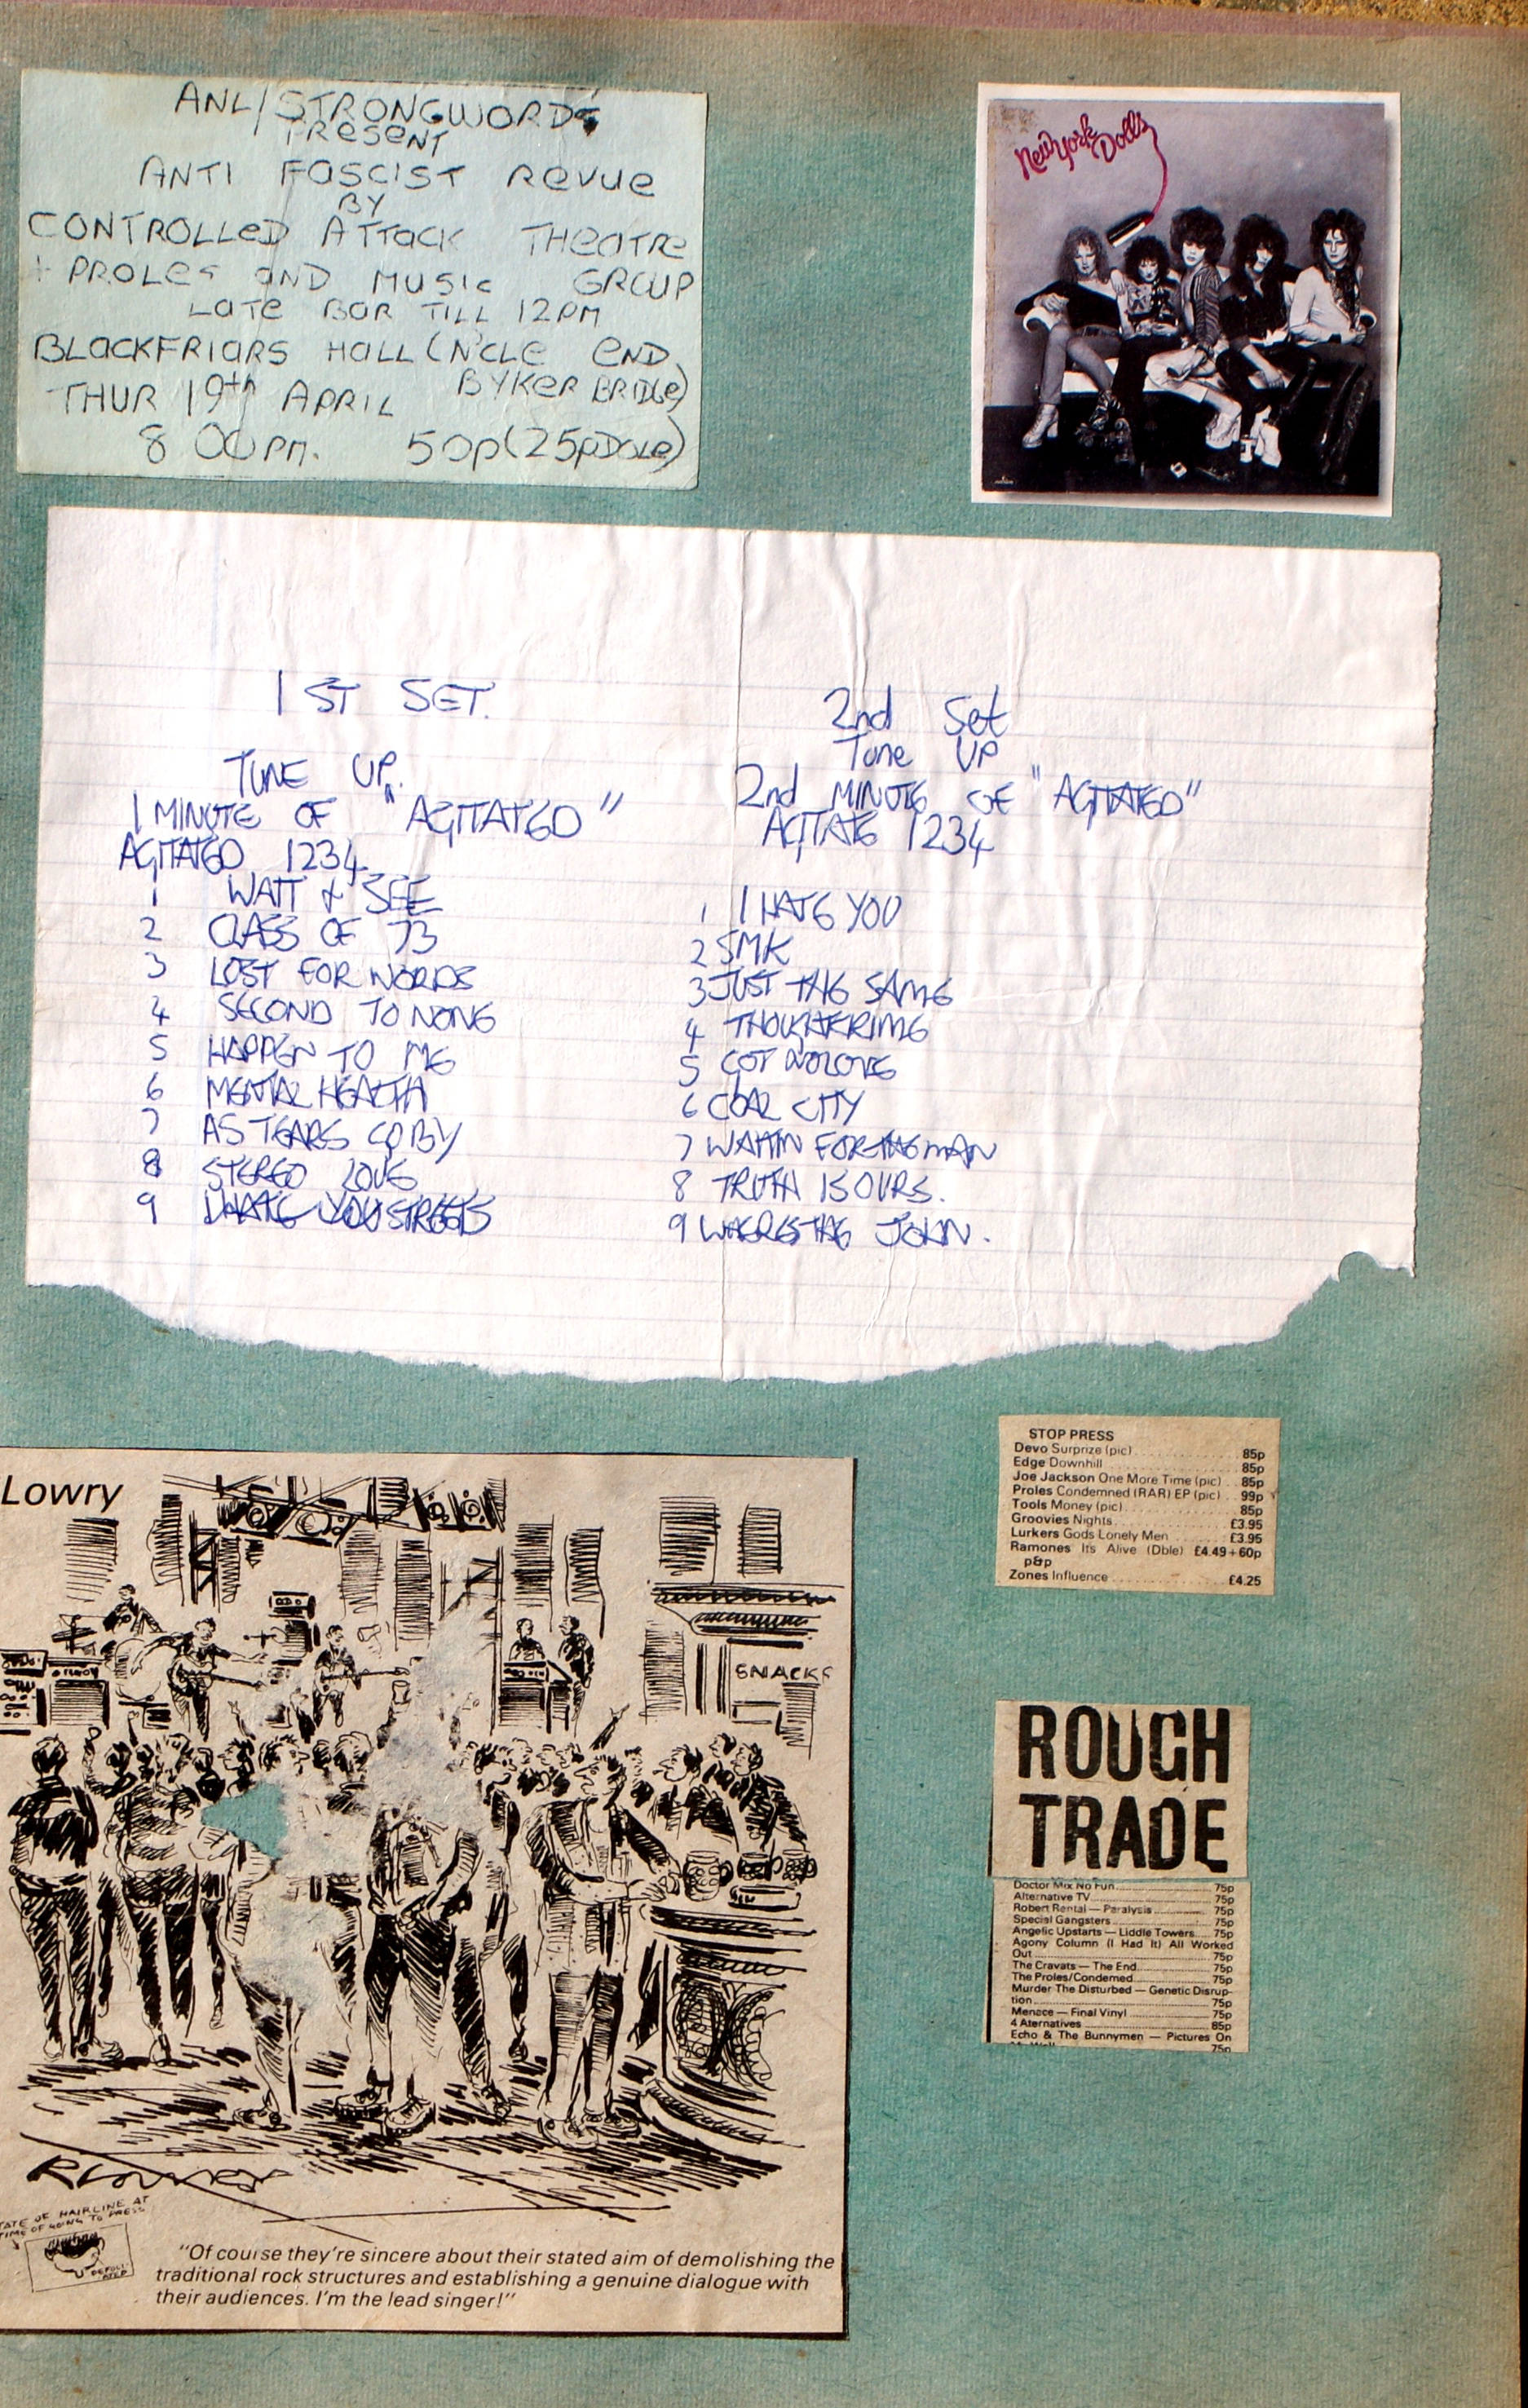 ANL/STRONGWORDS
PRESENT
ANTI FASCIST REVUE
BY
CONTROLLED ATTACK THEATRE
+ PROLES AND MUSIC GROUP
LATE BAR TILL 12PM
BLACKFRIARS HALL (N'CLE END
BYKER BRIDGE)
THUR 19th APRIL
8 00PM. 50p (25p DOLE)
New York Dolls
1ST SET.
TUNE UP.
1 MINUTE OF "AGITATED"
AGITATED 1234
1 WAIT + SEE
2 CLASS OF 73
3 LOST FOR WORDS
4 SECOND TO NONE
5 HAPPEN TO ME
6 MENTAL HEALTH
7 AS TEARS GO BY
8 STEREO LOVE
9 I HATE YOU STREETS
2nd Set
Tune UP
2nd MINUTE OF "AGITATED"
AGITATE 1234
1 I HATE YOU
2 SMK
3 JUST THE SAME
4 THOUGHTCRIME
5 GOT NO LOVE
6 COAL CITY
7 WAITIN FOR THE MAN
8 TRUTH IS OURS.
9 WHERES THE JOHN.
STOP PRESS
Devo Surprize (pic) 85p
Edge Downhill 85p
Joe Jackson One More Time (pic) 85p
Proles Condemned (RAR) EP (pic) 99p
Tools Money (pic) 85p
Groovies Nights £3.95
Lurkers Gods Lonely Men £3.95
Ramones Its Alive (Dble) £4.49 + 60p
p&p
Zones Influence £4.25
Lowry
SNACKS
TATE OF HAIRLINE AT
TIME OF GOING TO PRESS
"Of course they're sincere about their stated aim of demolishing the
traditional rock structures and establishing a genuine dialogue with
their audiences. I'm the lead singer!"
ROUGH
TRADE
Doctor Mix No Fun 75p
Alternative TV 75p
Robert Rental — Paralysis 75p
Special Gangsters 75p
Angelic Upstarts — Liddle Towers 75p
Agony Column (I Had It) All Worked
Out 75p
The Cravats — The End 75p
The Proles/Condemed 75p
Murder The Disturbed — Genetic Disrup-
tion 75p
Menace — Final Vinyl 75p
4 Aternatives 85p
Echo & The Bunnymen — Pictures On
75p